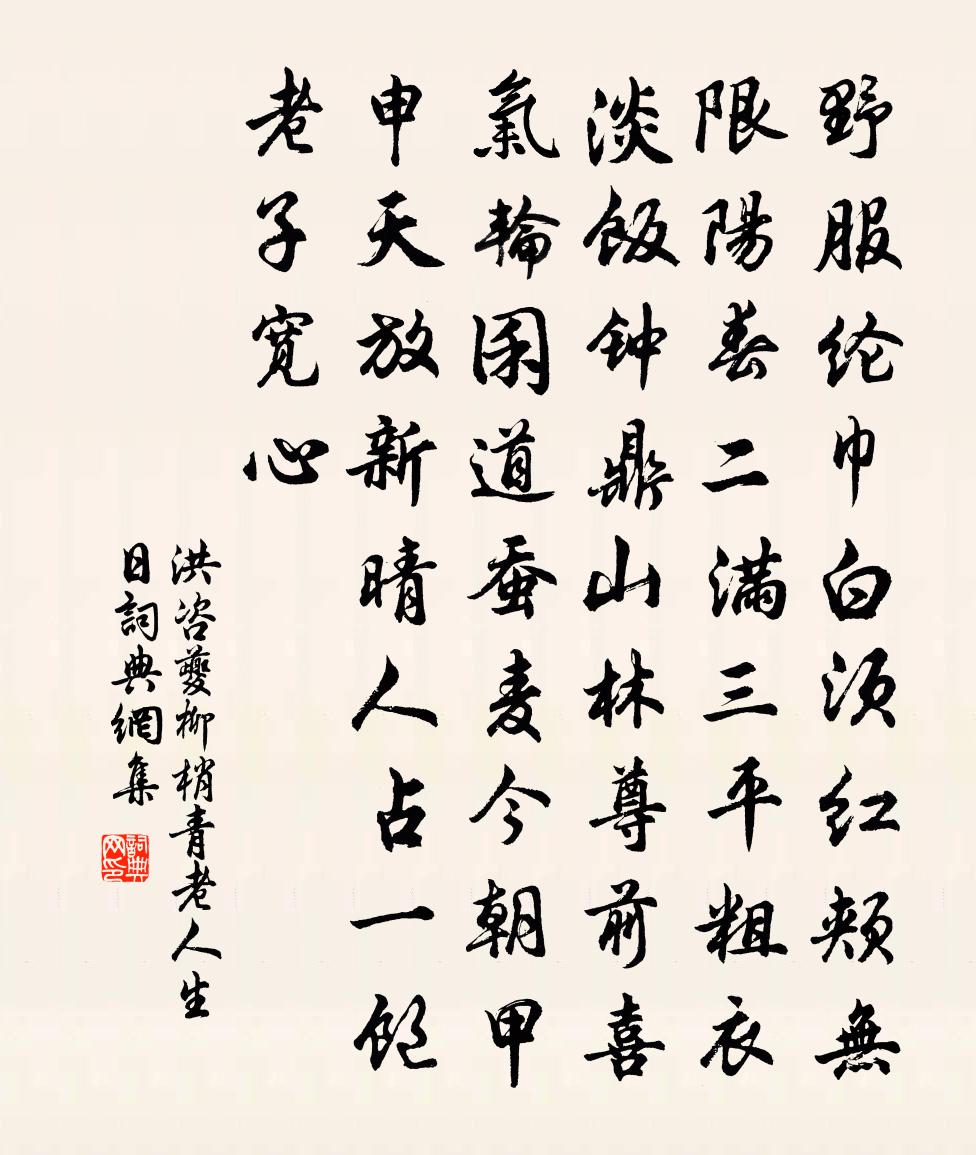 野服纶巾白须红颊無
限陽春二满三平粗衣
淡飯钟鼎山林尊前喜
氣輪囷道蚕麦今朝甲
申天放新晴人占一飽
老子寬心
洪咨夔柳梢青老人生
日詞典網集
詞典
网印